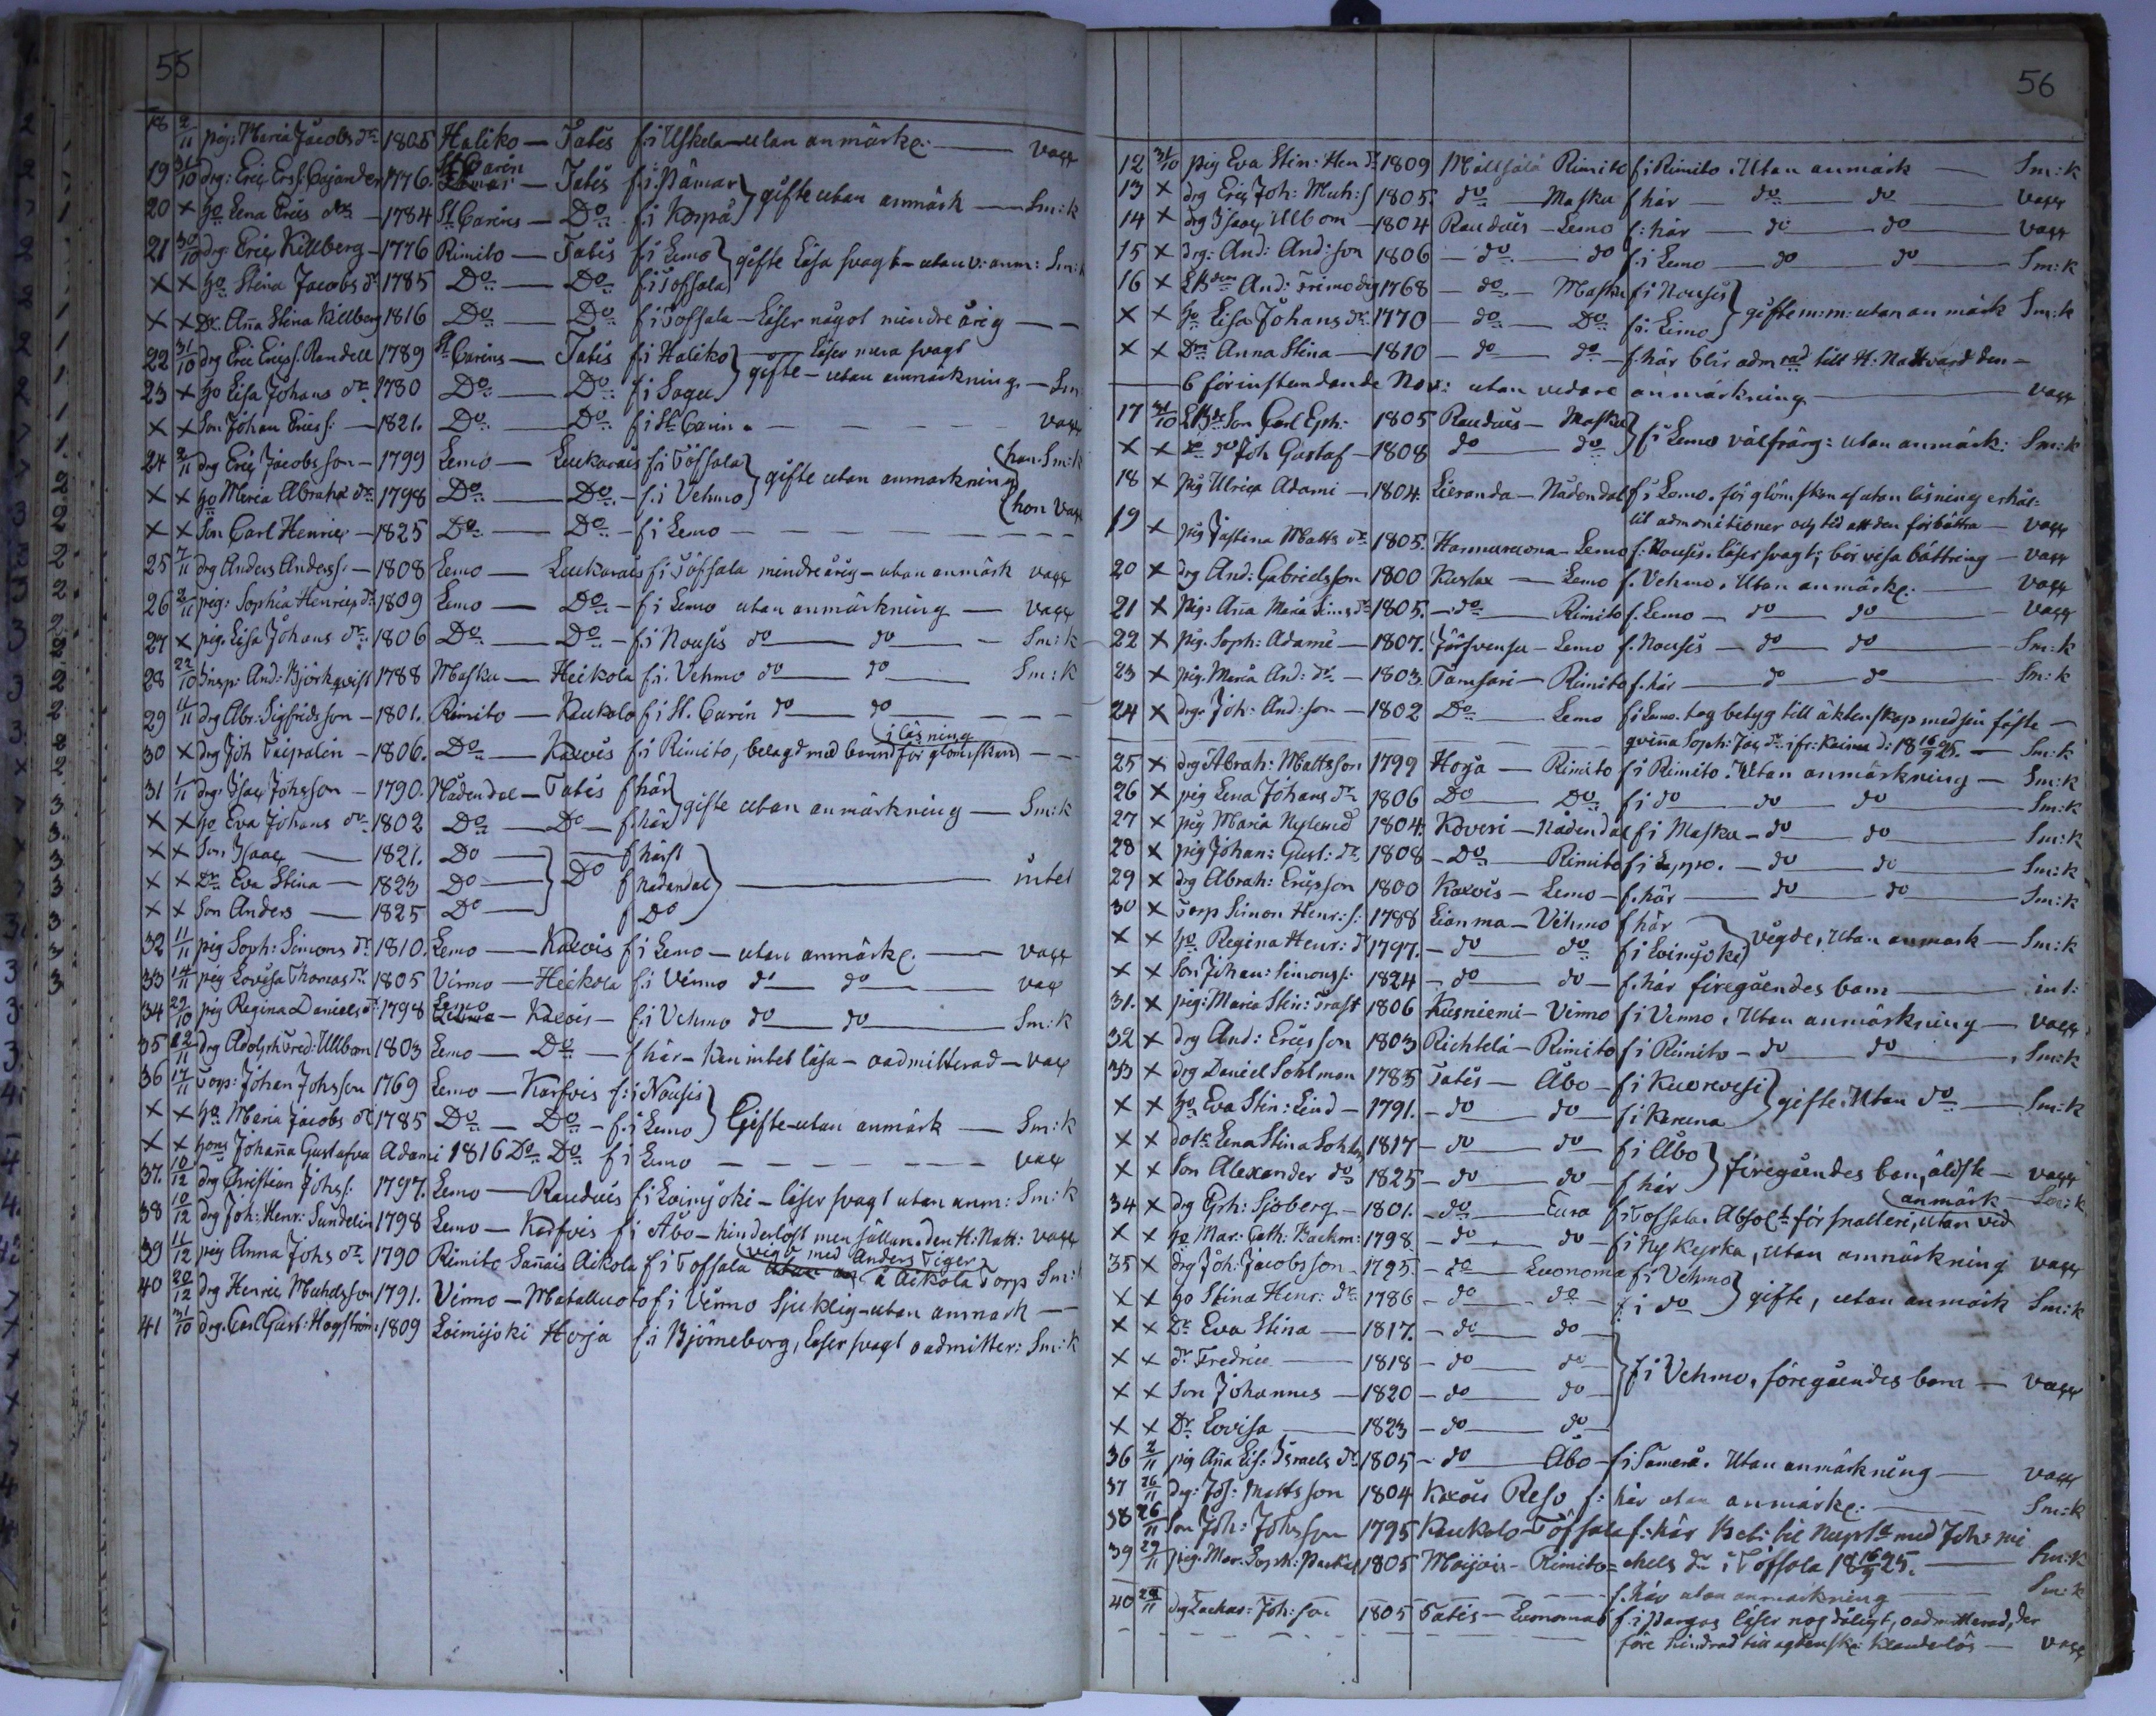 55
18 2/11 pig: Maria Jacobs dr 1805 Haliko — Tatis f: i Uskela — utan anmärkn: — vacc
19 31/10 drg: Eric Ers S: Cajander 1776. St Carin — Tatis f: i Pämar } gifte utan anmärk — Sm: k
20 × ho Lena Erics dr — 1784 St Carins — Do f: i Korpå
21 30/10 drg: Eric Killberg — 1776 Rimito — Tatis f i Lemo } gifte läsa svagt — utan v: anm: Sm: k
× × ho Stina Jacobs dr 1785 Do — Do f: i Töfsala
× × Dr. Aña Stina Killberg 1816 Do — Do f i Tofsala — läser något mindre årig — —
22 31/10 drg Eric Erics S. Randell 1789 St Carins — Tatis f i Haliko } läser mera svagt
23 × ho Lisa Johans dr 1780 Do — Do f i Sagu } gifte — utan anmärkning — Sm
× × Son Johan Erics S: — 1821. Do — Do f i St Carin — vacc
24 2/11 drg Eric Jacobsson — 1799 Lemo — Leukarais f i Töfsala } gifte utan anmärkning (han Sm: k
× × ho Maria Abraha dr 1798 Do — Do — f. i Vehmo (hon vacc
× × Son Carl Henric — 1825 Do — Do — f i Lemo — — —
25 7/11 drg Anders Anders S: — 1808 Lemo — Leukarais f i Töfsala mindreårig — utan anmärk vacc
26 2/11 pig: Sophia Henrics dr 1809 Lemo — Do — f i Lemo utan anmärkning — vacc
27 × pig. Lisa Johans dr: 1806 Do — Do — f. i Nousis do — do — Sm: k
28 22/10 Insp: And: Björkqvist 1788 Masku — Heikola f. i. Vehmo do — do — Sm: k
29 11/11 drg Abr: Sigfridsson — 1801. Rimito — Kaukola f i St. Carin do — do — — —
i läsning
30 × drg Joh Taipalin — 1806. Do — Kaxois f. i Rimito, belagd med för glömskan — —
31 1/11 drg. Isac Johsson — 1790. Nådendal — Tatis f här } gifte utan anmärkning — Sm: k
× × ho Eva Johans dr 1802 Do — Do — f. här
× × Son Isaac — 1821. Do — f härst
× × Dr. Eva Stina — 1823 Do — Do f Nådendal — intet
× × Son Anders — 1825 Do — f Do
32 11/11 pig Soph: Simons dr 1810. Lemo — Kaxois f i Lemo — utan anmärkn. — vacc
33 14/11 pig Lovisa Thomas dr 1805 Virmo — Heikola f. i Virmo do — do — vac
34 29/10 pig Regina Daniels dr 1798 Lemo — Kaxois — f. i Vehmo do — do — Sm: k
35 12/11 drg Adolph Fred: Ullbom 1803 Lemo — Do — f här — kan intet läsa — oadmitterad — vac
36 17/11 Torp: Johan Johsson 1769 Lemo — Karfvis f: i Nousis } Gifte — utan anmärk — Sm: k
× × ho Maria Jacobs dr 1785 Do — Do — f. i Lemo
× × hons Johaña Gustafva Adami 1816 Do Do f i Lemo — — — vac
37. 10/12 drg Christian Johs S: 1797. Lemo — Raudais f i Loimijoki — läser svagt utan anm: Sm: k
38 10/12 drg Joh: Henr: Sundelin 1798 Lemo — Karfvis f i Åbo — hinderlöst men sällan den H: Natt: vacc
39 11/12 pig Anna Johs dr 1790 Rimito Sañais Aikola f i Tofsala vigd med Anders Tiger å Aikola Torp Sm:
40 20/12 drg Henric Michelsson 1791. Virmo — Matalluoto f i Virmo Sjuklig — utan anmärk — —
41 31/10 drg. Carl Gust: Hagström: 1809 Loimijoki Horja f. i Björneborg, läser svagt oadmitter: Sm: k
56
12 31/10 pig Eva Stin: Hen dr 1809 Mälsälä Rimito f i Rimito. Utan anmärk — Sm: k
13 × drg Eric Joh: Mich: S 1805. do — Masku f här — do — do — vacc
14 × drg Isaac Ullbom — 1804 Raudais — Lemo f: här — do — do — vacc
15 × drg: And: And: son 1806 — do — do f. i Lemo — do — do — Sm: k
16 × And: Fremodig 1768 — do — Masku f i Nousis } gifte m: m: utan anmärk Sm: k
× × ho Lisa Johans dr 1770 — do — Do f: i Lemo
× × Dr Anna Stina — 1810 — do — do — f. här blir adm rad till H: Nattvard den —
— 6 förinstundande Nov: utan vidare anmärkning — vacc
17 31/10 Son Carl Eph: 1805 Raudais — Masku } f i Lemo välfräg: utan anmärk: Sm: k
× × do Joh Gustaf — 1808 do — do
18 × pig Ulrica Adami — 1804. Lieranda — Nådendal f i Lemo. för glömskan af utan läsning erhål-
lit admonitioner och tid att den förbättra — vacc
19 × pig Justina Matts dr 1805. Hannuraona — Lemo f: Nousis. läser svagt, bör visa bättring — vacc
20 × drg And: Gabrielsson 1800 Kuslax — Lemo f. Vehmo. Utan anmärkn. — vacc
21 × pig: Aña Maria Sims dr 1805. — do — Rimito f. Lemo — do — do — vacc
22 × pig. Soph: Adami — 1807. Järfvensu — Lemo f. Nousis — do — do — Sm: k
23 × pig. Maria And: dr — 1803. Tamsari — Rimito f. här — do — do — Sm: k
24 × drg. Joh: And: son — 1802 Do — Lemo f i Lemo. tog betyg till äktenskap med sin fäste —
qviña Soph: Jac dr i fr: Kaisna d: 18 16/9 25. — Sm: k
25 × drg Abrah: Mattsson 1799 Horja — Rimito f i Rimito. Utan anmärkning — Sm: k
26 × pig Lena Johans dr 1806 Do — Do f i do — do — do — Sm: k
27 × pig Maria Nylund 1804. Koveri — Nådendal f i Masku — do — do — Sm: k
28 × pig Johan: Gust: dr 1808 — Do — Rimito f i Loppo. — do — do — Sm: k
29 × drg Abrah: Ericsson 1800 Kaxois — Lemo — f. här — do — do — Sm: k
30 × Torp Simon Henr: S: 1788 Lianma — Vehmo f här } vigde, Utan anmärk — Sm: k
× × ho Regina Henr: dr 1797. — do — do f i Loimijoki
× × Son Johan: Simons S: 1824 — do — do — f. här föregåendes barn — int:
31. × pig: Maria Stin: Trast 1806 Kusniemi — Virmo f i Virmo. Utan anmärkning — vacc
32 × drg And: Ericsson 1803 Richtelä — Rimito f i Rimito — do — do — Sm: k
33 × drg Daniel Sohlman 1785 Tatis — Åbo — f i Kuorevesi } gifte. Utan do — Sm: k
× × ho Eva Stin: Lind — 1791. — do — do — f i Karuna
× × dotr Lena Stina Sohlm 1817 — do — do — f i Åbo } föregåendes barn, äldste — vacc
× × Son Alexander do 1825 — do — do — f här
34 × drg Grh: Sjöberg — 1801. — do — Eura f i Tofsala. Absolt för snatteri, utan vid anmärk — Sm: k
× × ho Mar: Cath: Backm: 1798 — do — do — f i Nykyrka, utan anmärkning vacc
35 × drg Joh: Jacobsson — 1795. — do — Luonoma f i Vehmo } gifte, utan anmärk Sm: k
× × ho Stina Henr: dr 1786 — do — do — f: i do
× × Dr Eva Stina — 1817. — do — do —
× × dr Fredrica — 1818 — do — do — } f i Vehmo, föregåendes barn — vacc
× × Son Johannes — 1820 — do — do —
× × Dr Lovisa — 1823 — do — do —
36 2/11 pig Aña Lis: Israels dr 1805 — do — Åbo — f i Tamerå. Utan anmärkning — vacc
37 26/11 drg: Jos: Mattsson 1804 Kaxois Reso f: här utan anmärkn: — Sm: k
38 26/11 Son Joh: Johsson 1795 Kaukolo — Töfsala f: här Bet: til med Joh: mi
39 29/11 pig. Mar. Soph: 1805 Moijois — Rimito = chels dr i Töfsala 18 16/9 25. — Sm: k
— f. här utan anmärkning — Sm: k
40 28/11 drg Zachar: Joh: son 1805 Tatis — Luonomas f. i Pargas läser nog dåligt, oadmitterad, der
före hindrad till klanderlös — vacc